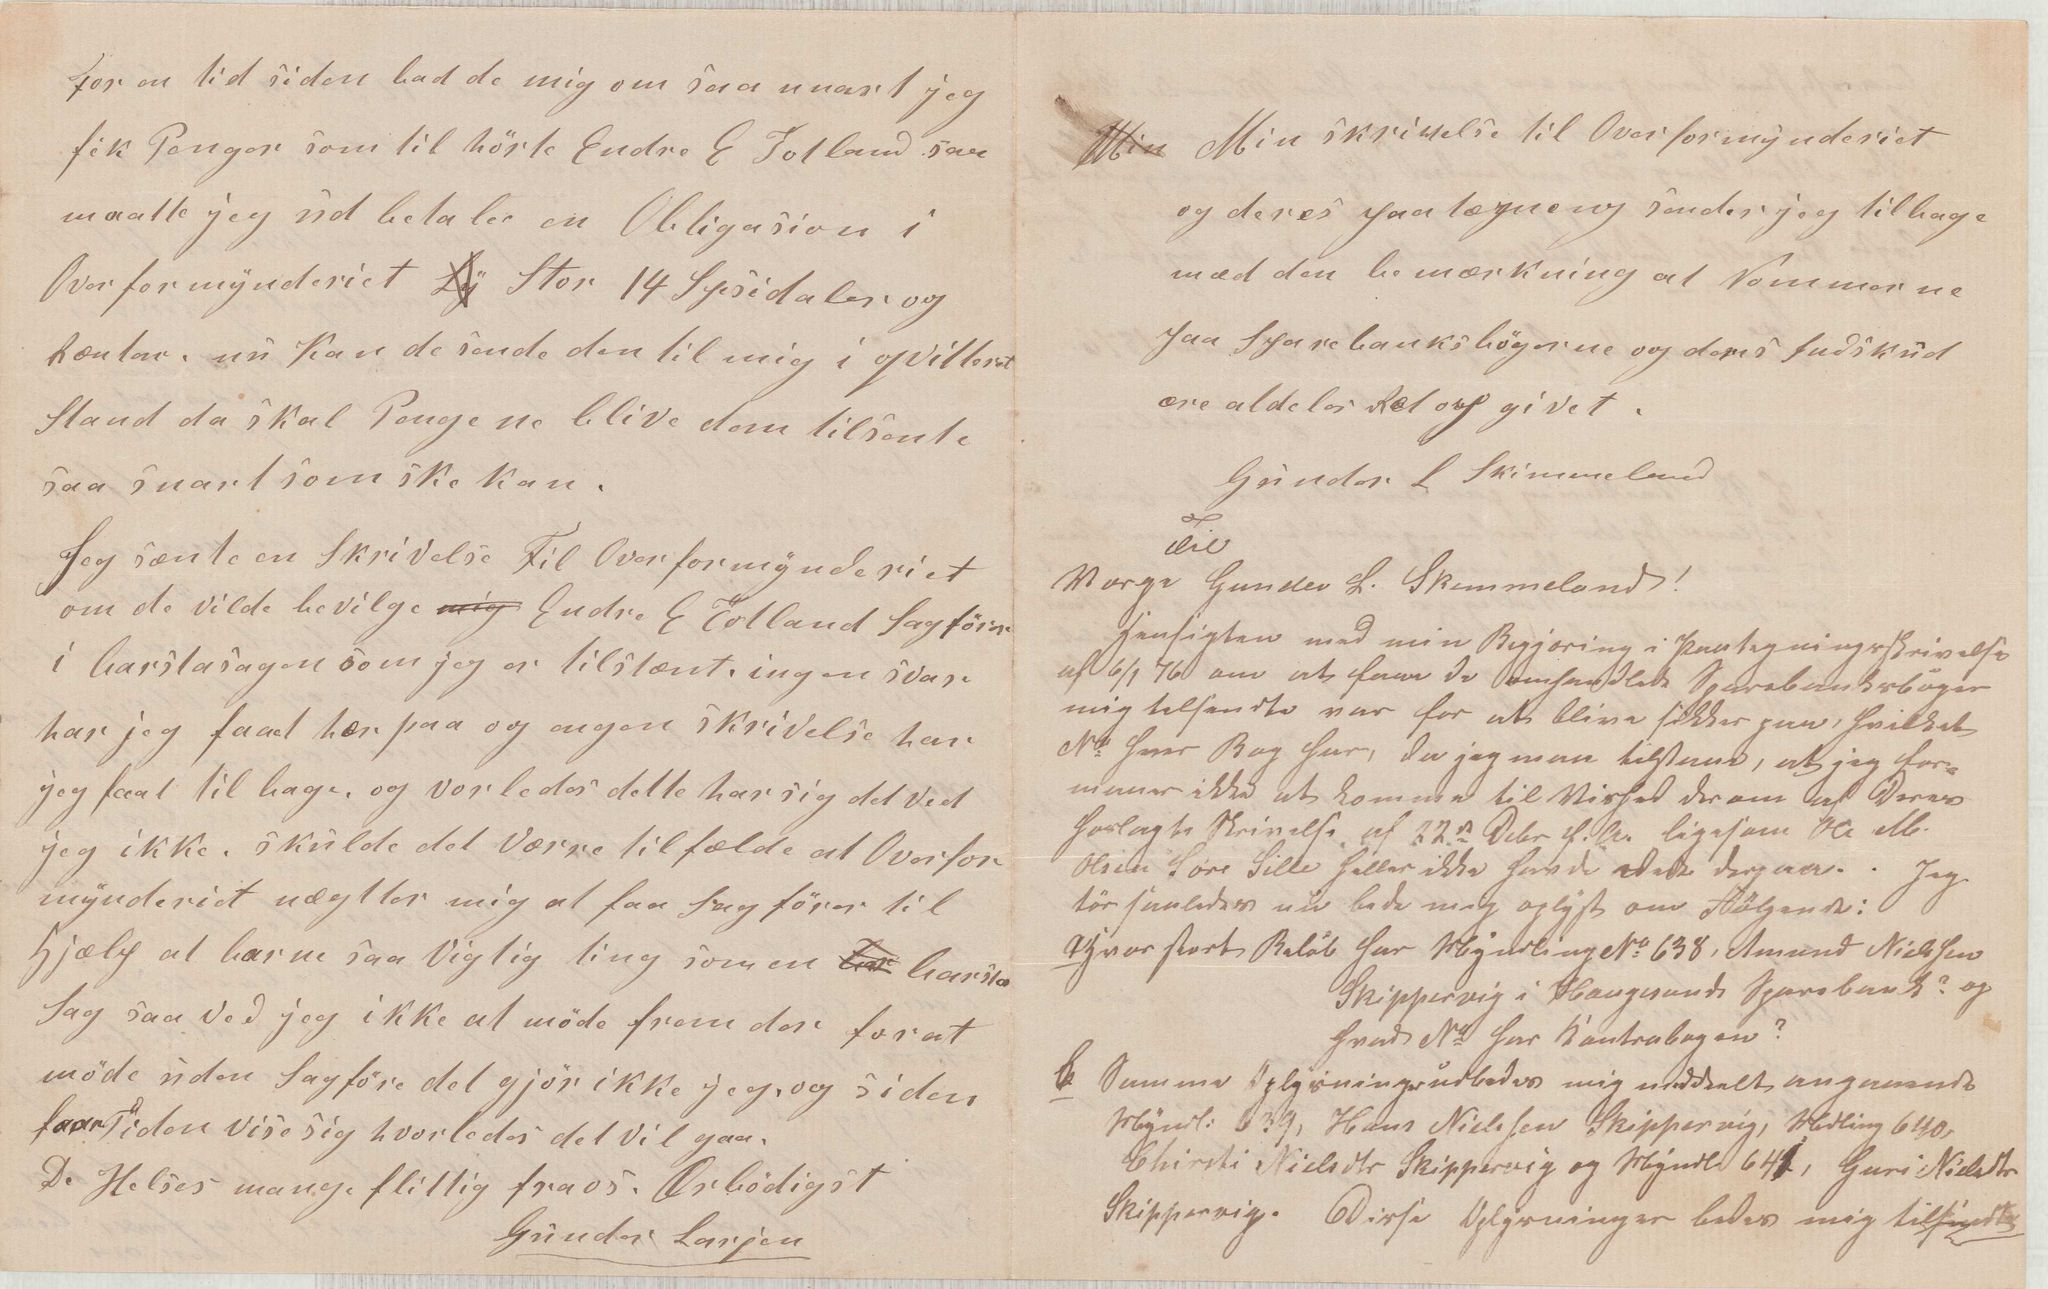 for en tid siden bad de mig om saa snart jeg
fik Penger som til hörte Endre E Totland saa
maatte jeg ud betalee en Obligasion i
Overformynderiet Stor 14 Spsidaler og
Rænter. nu Kan de sende den til mig i qvitteret
Stand da skal Pengene blive dem tilsente
saa snart som ske kan.
Jeg sænte en Skrivelse Til Overformynderiet
om de vilde bevilge mig Endre E Totland Sagförer
i barsta sagen som jeg er tilstænt. ingen svar
har jeg faaet hær paa og engen skrivelse har
jeg faat tilbage. og vorledes dette har sig det ved
jeg ikke. skulde det Værre tilfælde at Overfor
mynderiet nægtter mig at faa Sagförer til
Hjælp at barne saa Vigtig ting som en bar barsta
Sag saa ved jeg ikke at möde frem der for at
möde uden Sagföre det gjör ikke jeg, og siden
faar Tiden vise sig hvorledes det vil gaa.
De Helses mange flittig fra os. Ærbödigst
Gunder Larsen
Min Min skrivelse til Overformynderiet
og deres paa tægneng sender jeg tilbage
mæd den bemærkning at Nommerne
paa Sparebanksbögerne og deres Indskud
ere aldeles Ret opgivet.
Gunder L Skimmeland
Til
Værge Gunder L. Skimmeland!
Hensigten med min Begjæring i Paategningsskrivelse
af 6/1 76 om at faae de omhandlede Sparebanksböger
mig tilsendte var for at blive sikker paa, hvilket
No hver Bog har, da jeg maa tilstaae, at jeg for-
maaer ikke at komme til Vished derom af Deres
forlagte Skrivelse af 22de Debr f. A. ligesom Ole M.
Olsen Lore Lille heller ikke havde Rede derpaa. Jeg
tör saaledes nu bede mig oplyst om Fölgende:
Hvor stort Belöb har Myndling No 638, Amund Nielssen
Skippervig i Haugesunds Sparebank? og
hvad No har Contrabogen?
b Samme Oplysninger udbedes mig meddeelt angaaende
Myndl: 639, Hans Nielssen Skippervig, Mdling 640,
Chirsti Nielsdtr Skippervig og Myndl 641, Guri Nielsdtr
Skippervig. Disse Oplysninger bedes mig tilsendte